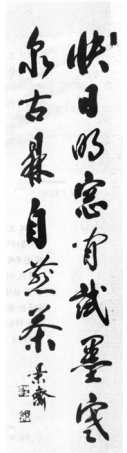 快日明窓閒試墨寒
泉古鼎自煎茶
景齋